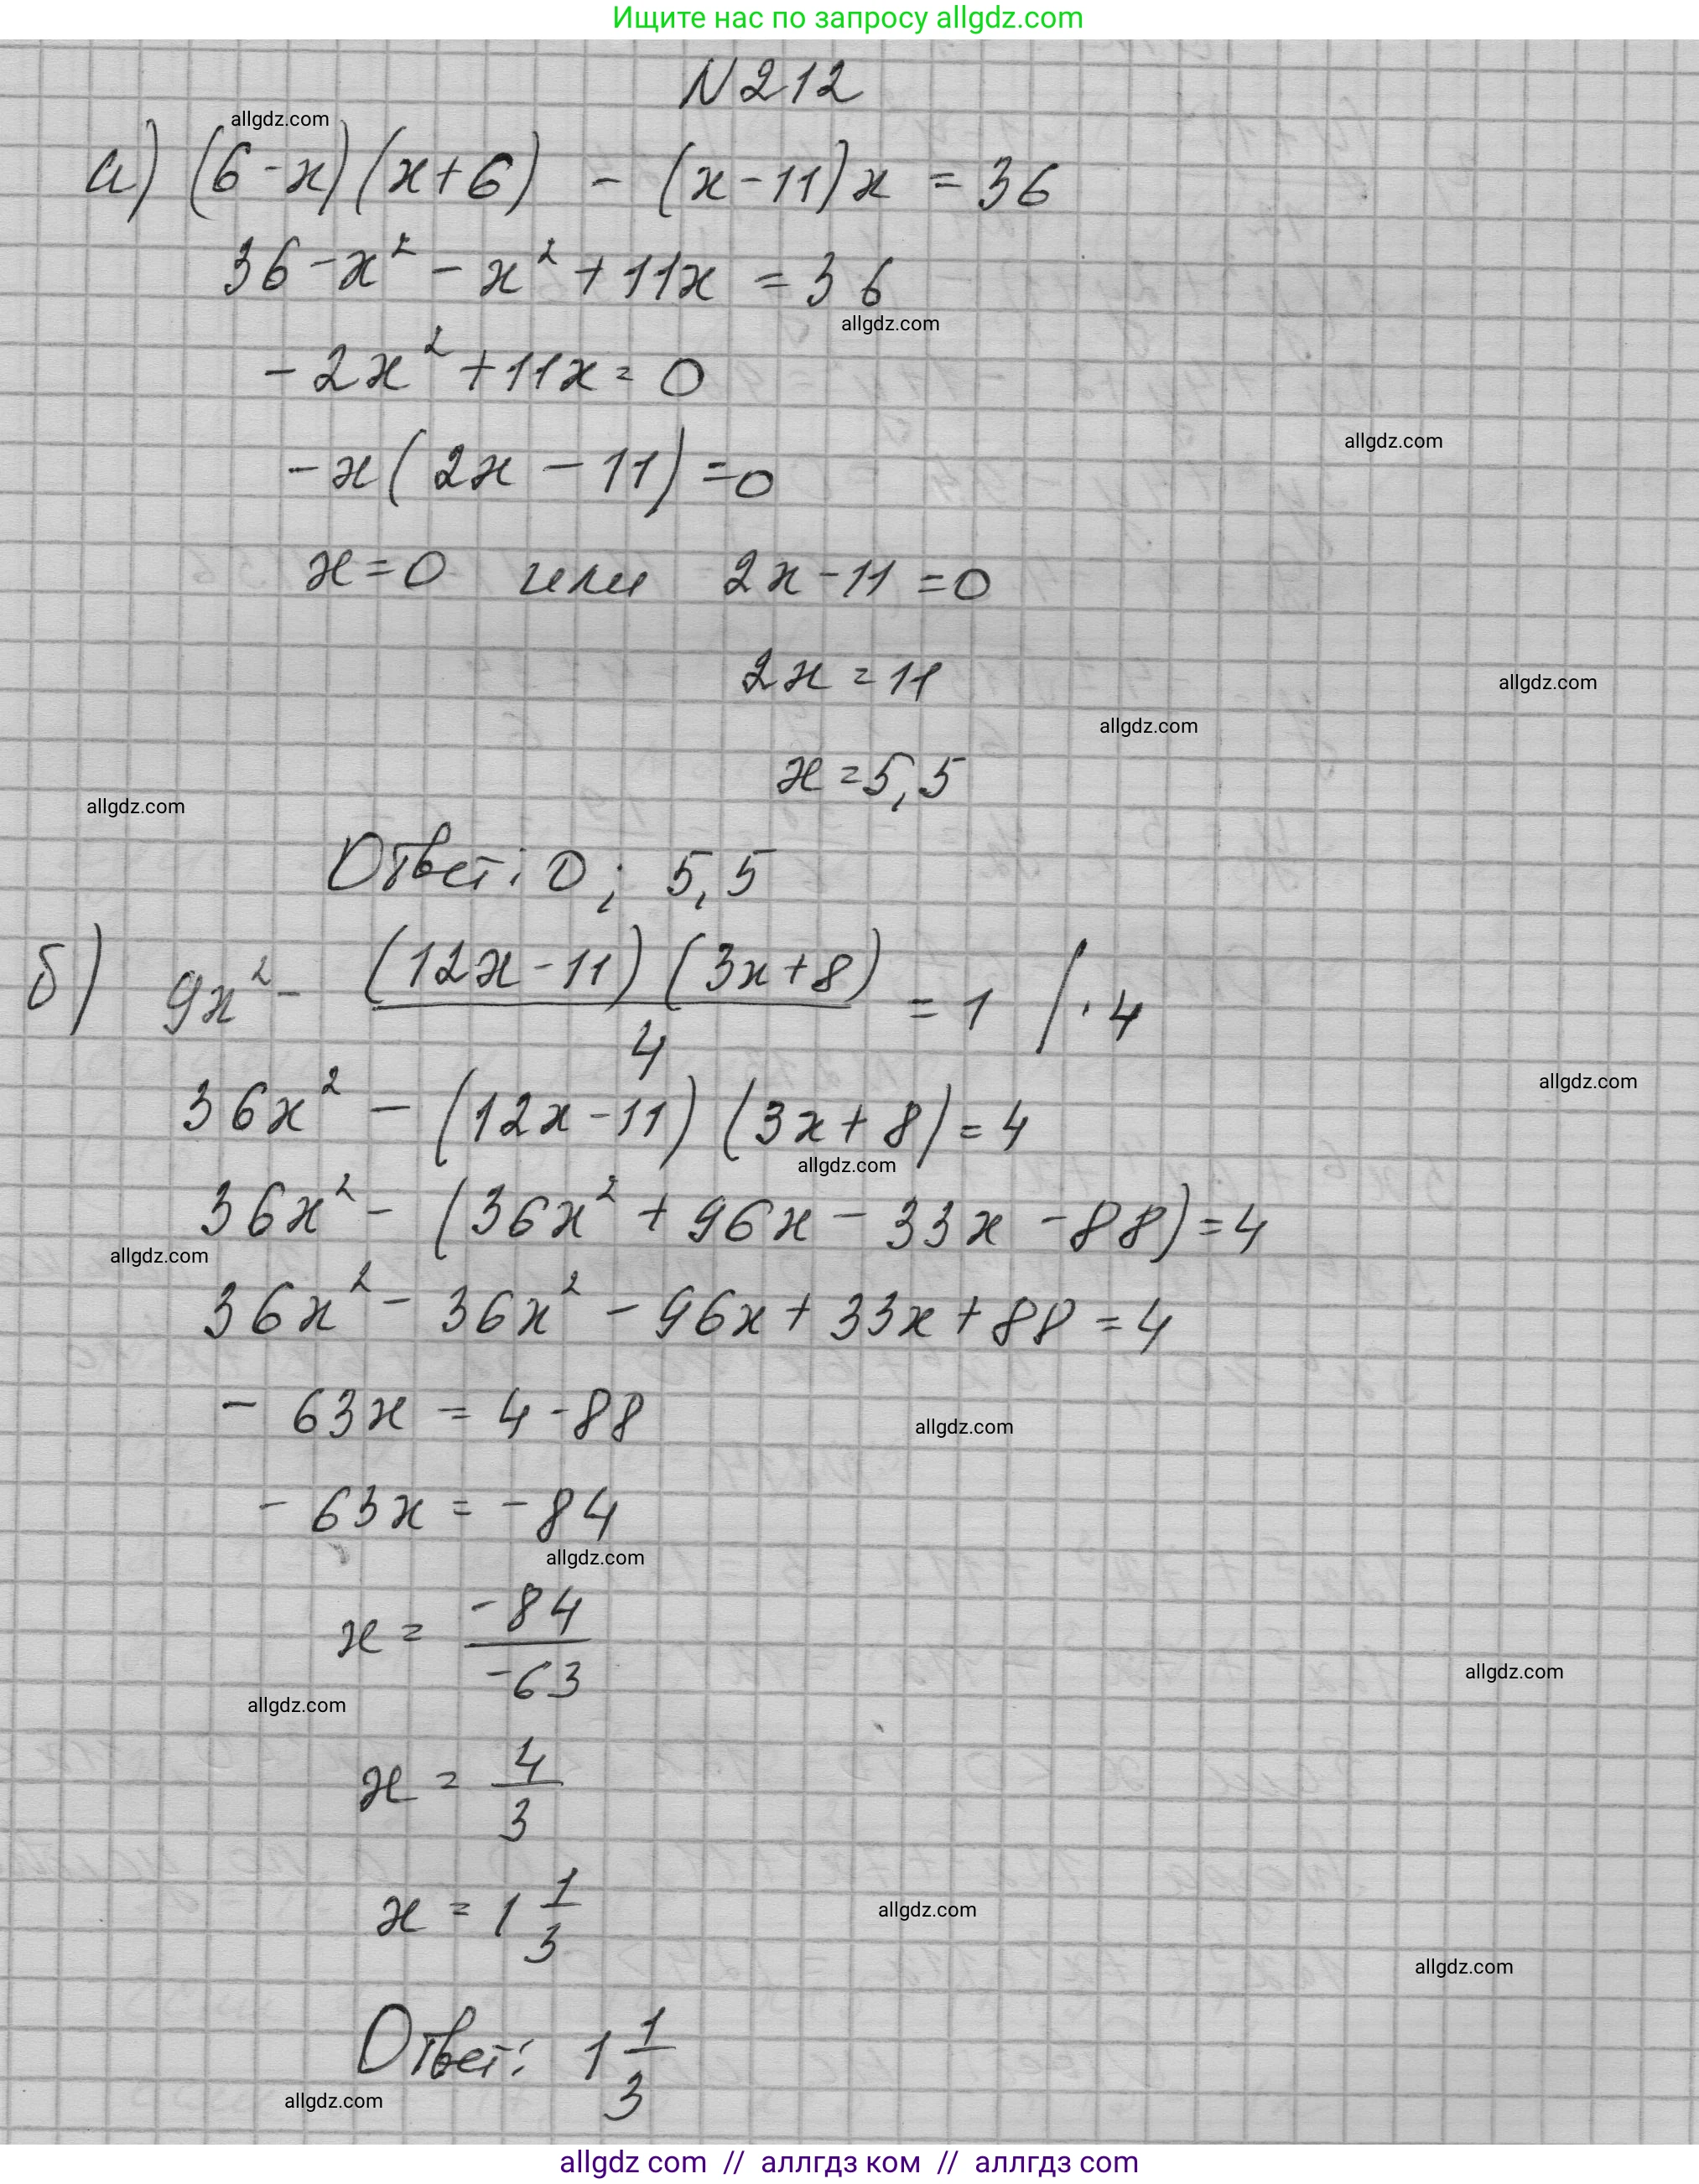 Ищите нас по запросу allgdz.com
N 212
allgdz.com
а) (6-x)(x+6) - (x-11)x = 36
36-x² - x² + 11x = 36
allgdz.com
-2x² + 11x = 0
allgdz.com
-x(2x - 11) = 0
x=0 или 2x-11=0
2x = 11
allgdz.com
allgdz.com
x = 5,5
allgdz.com
Ответ: 0; 5,5
б) 9x² - (12x-11)(3x+8)/4 = 1 | · 4
allgdz.com
36x² - (12x-11)(3x+8) = 4
allgdz.com
36x² - (36x² + 96x - 33x - 88) = 4
allgdz.com
36x² - 36x² - 96x + 33x + 88 = 4
-63x = 4-88
allgdz.com
-63x = -84
allgdz.com
x = -84/-63
allgdz.com
allgdz.com
x = 4/3
x = 1 1/3
allgdz.com
allgdz.com
Ответ: 1 1/3
allgdz.com
allgdz com // аллгдз ком // аллгдз com